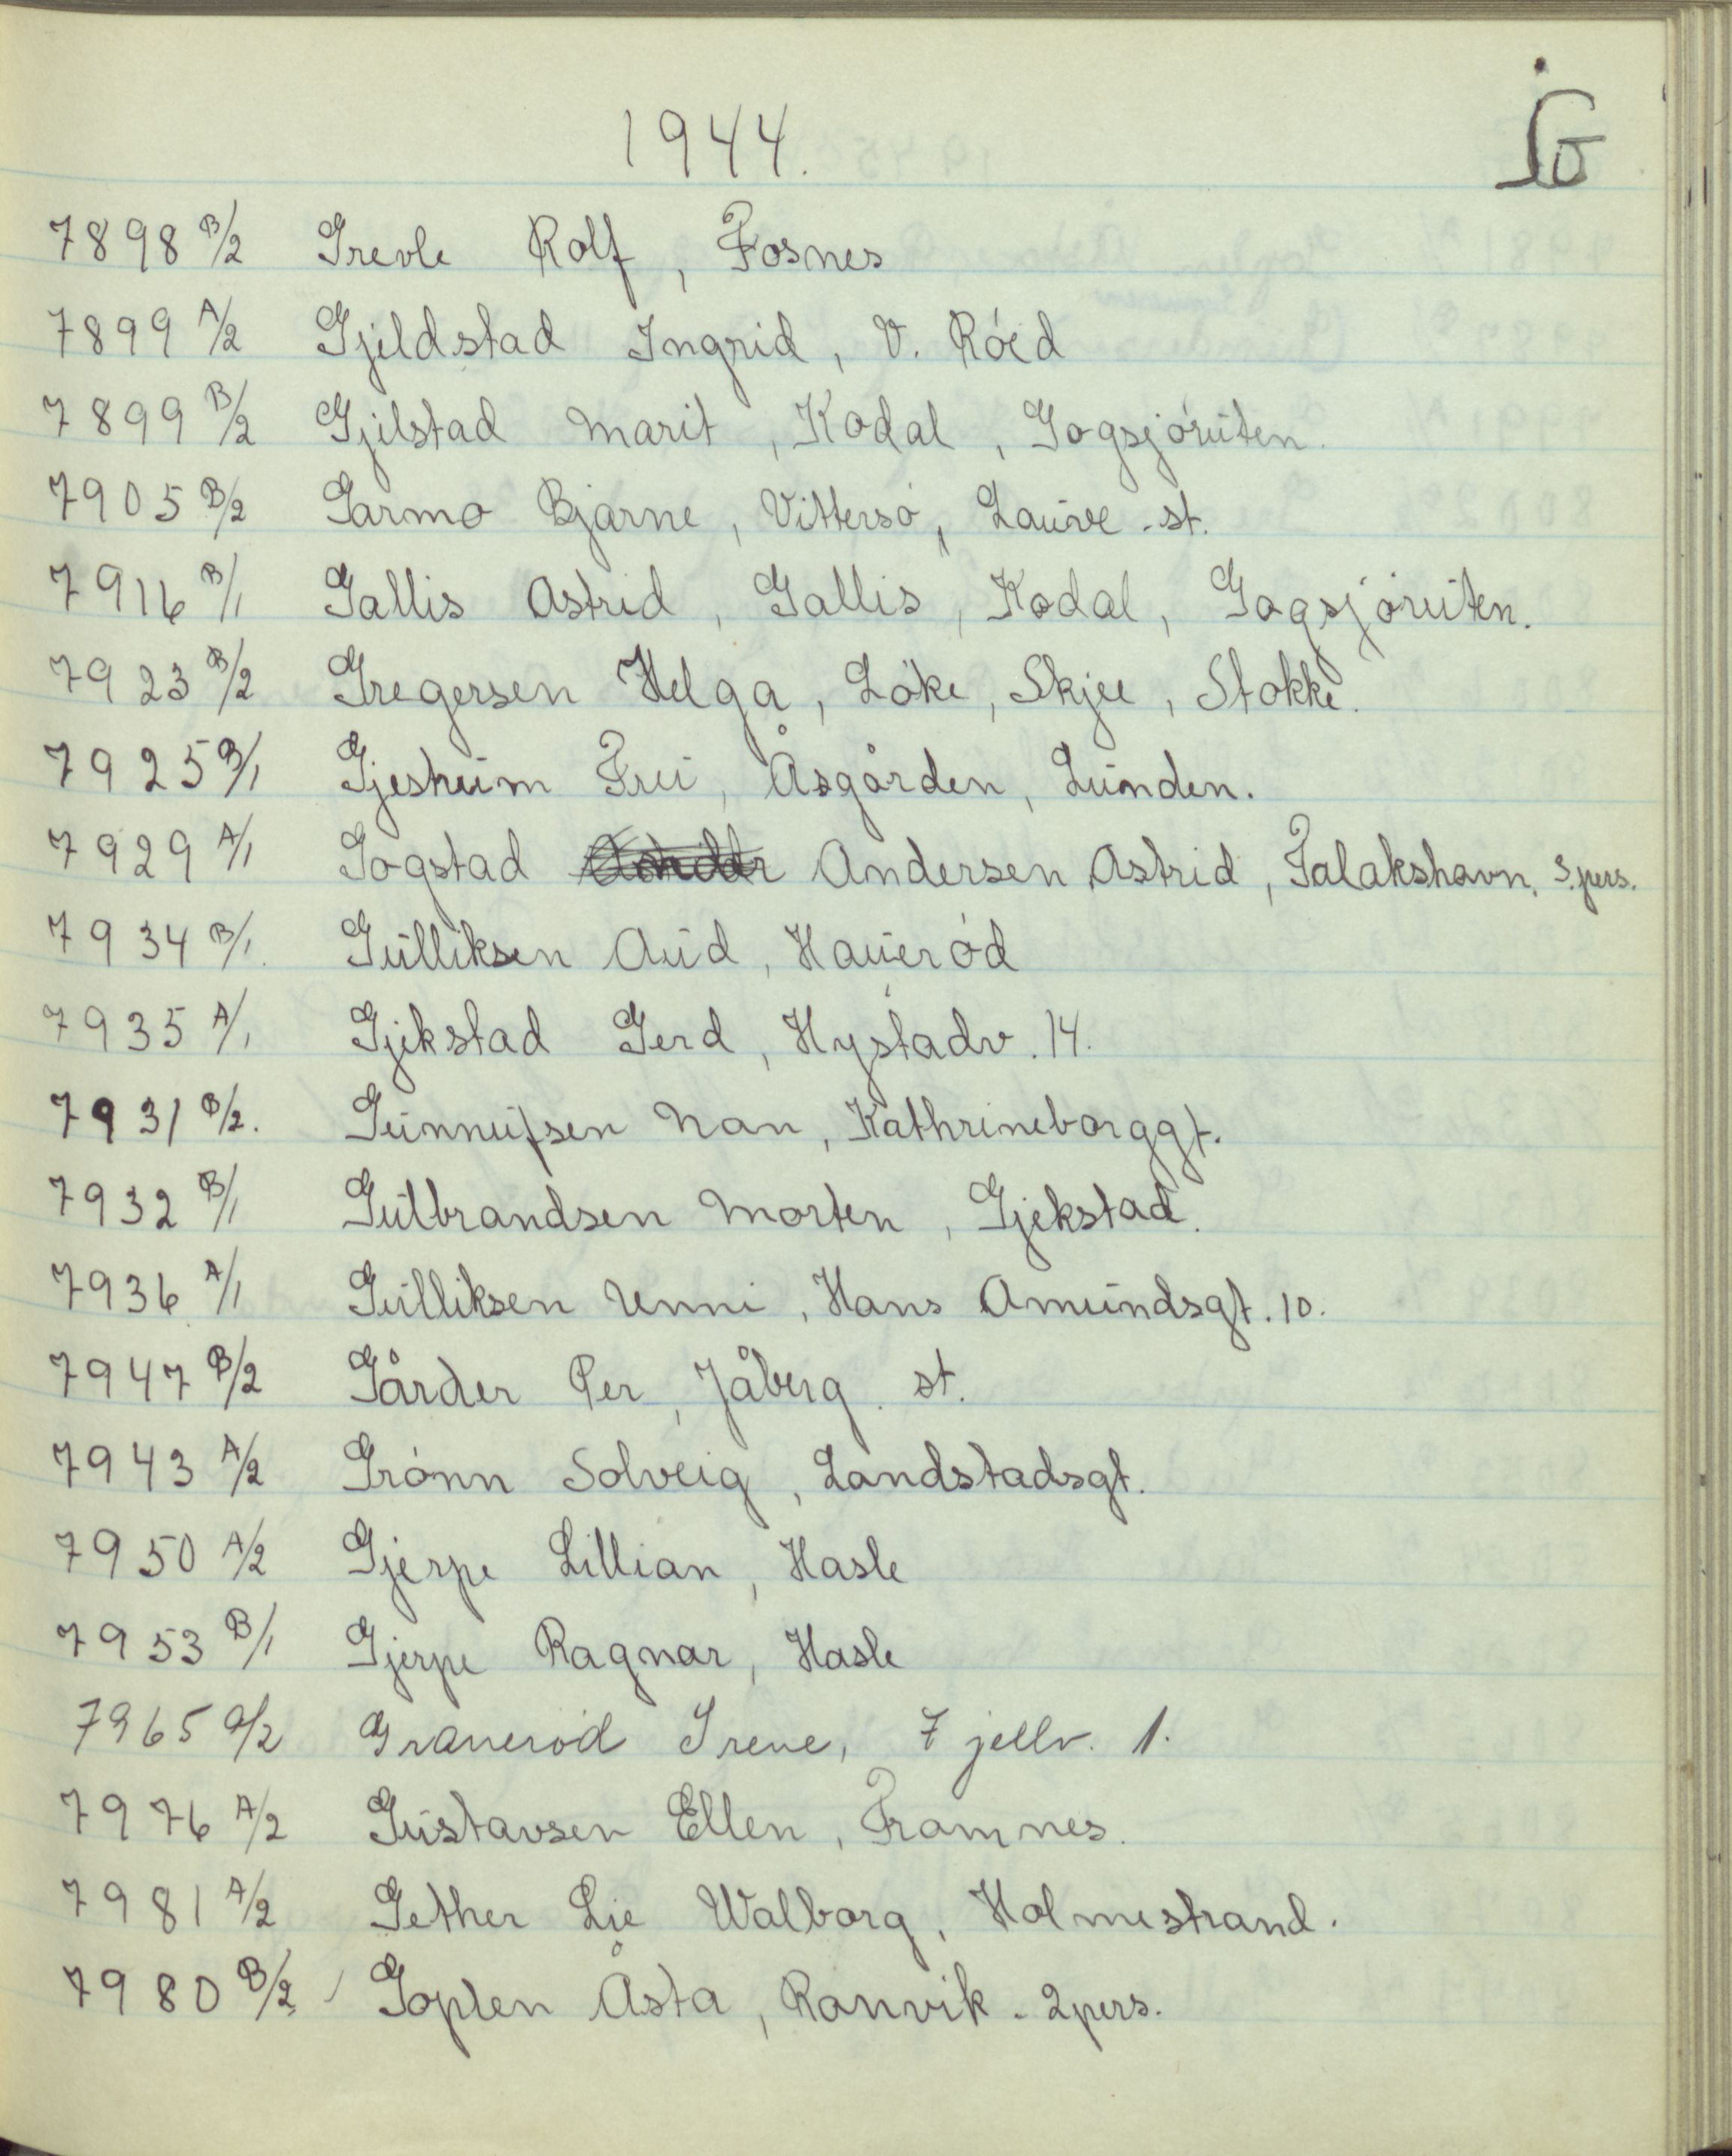 G
1944.
7898 B/2 Grevle Rolf, Fosnes
7899 A/2 Gjeldstad Ingrid, V. Röed
7899 B/2 Gjelstad Marit, Kodal, Gogsjöruten.
7905 B/2 Garmo Bjarne, Vittersö, Lauve-st.
7916 B/1 Gallis Astrid, Gallis, Kodal, Gogsjöruten.
7923 B/2 Gregersen Helga, Löke, Skjee, Stokke.
7925 B/1 Gjesheim Fru, Åsgården, Lunden.
7929 A/1 Gogstad Andersen Astrid, Falakshavn. 3.pers.
7934 B/1. Gulliksen Aud, Haueröd
7935 A/1 Gjekstad Gerd, Hystadv. 14.
7931 B/2. Gunnufsen Nan, Kathrineborggt.
7932 B/1 Gulbrandsen Morten, Gjekstad.
7936 A/1 Gulliksen Unni, Hans Amundsgt. 10.
7947 B/2 Gårder Per, Jåberg st.
7943 A/2 Grönn Solveig, Landstadsgt.
7950 A/2 Gjerpe Lillian, Hasle
7953 B/1 Gjerpe Ragnar, Hasle
7965 a/2 Graveröd Irene, Fjellv. 1.
7976 A/2 Gustavsen Ellen, Framnes.
7981 A/2 Gether Lie Walborg, Holmestrand.
7980 B/2 Goplen Åsta, Ranvik - 2pers.